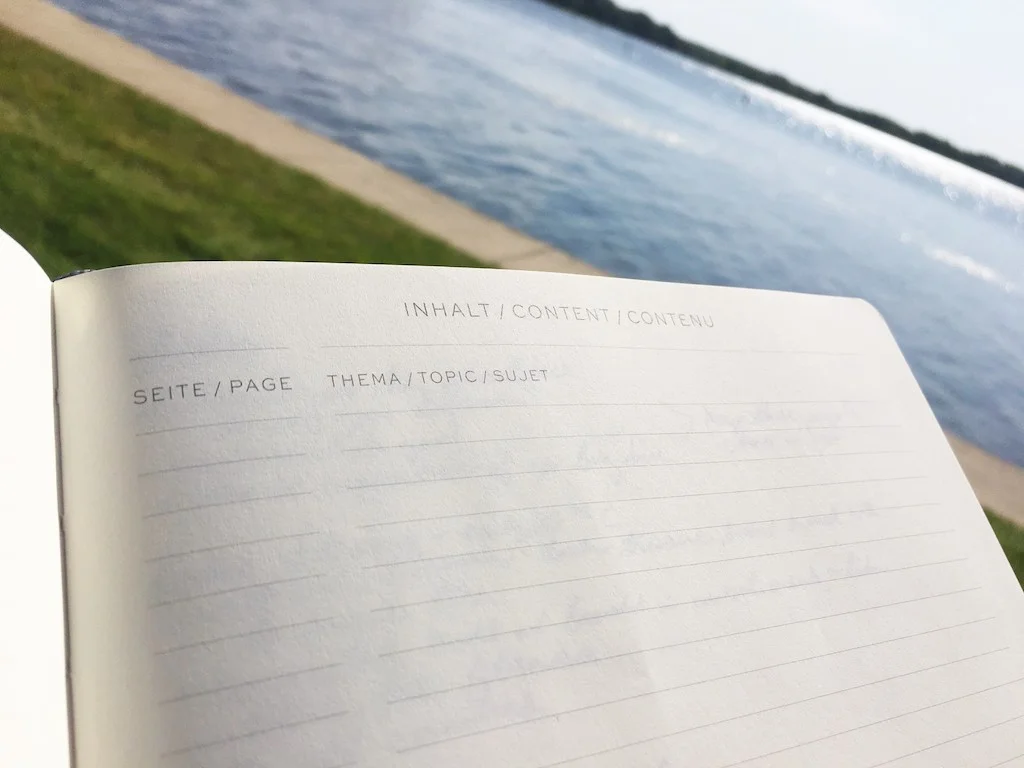 INHALT / CONTENT / CONTENU
SEITE / PAGE THEMA / TOPIC / SUJET